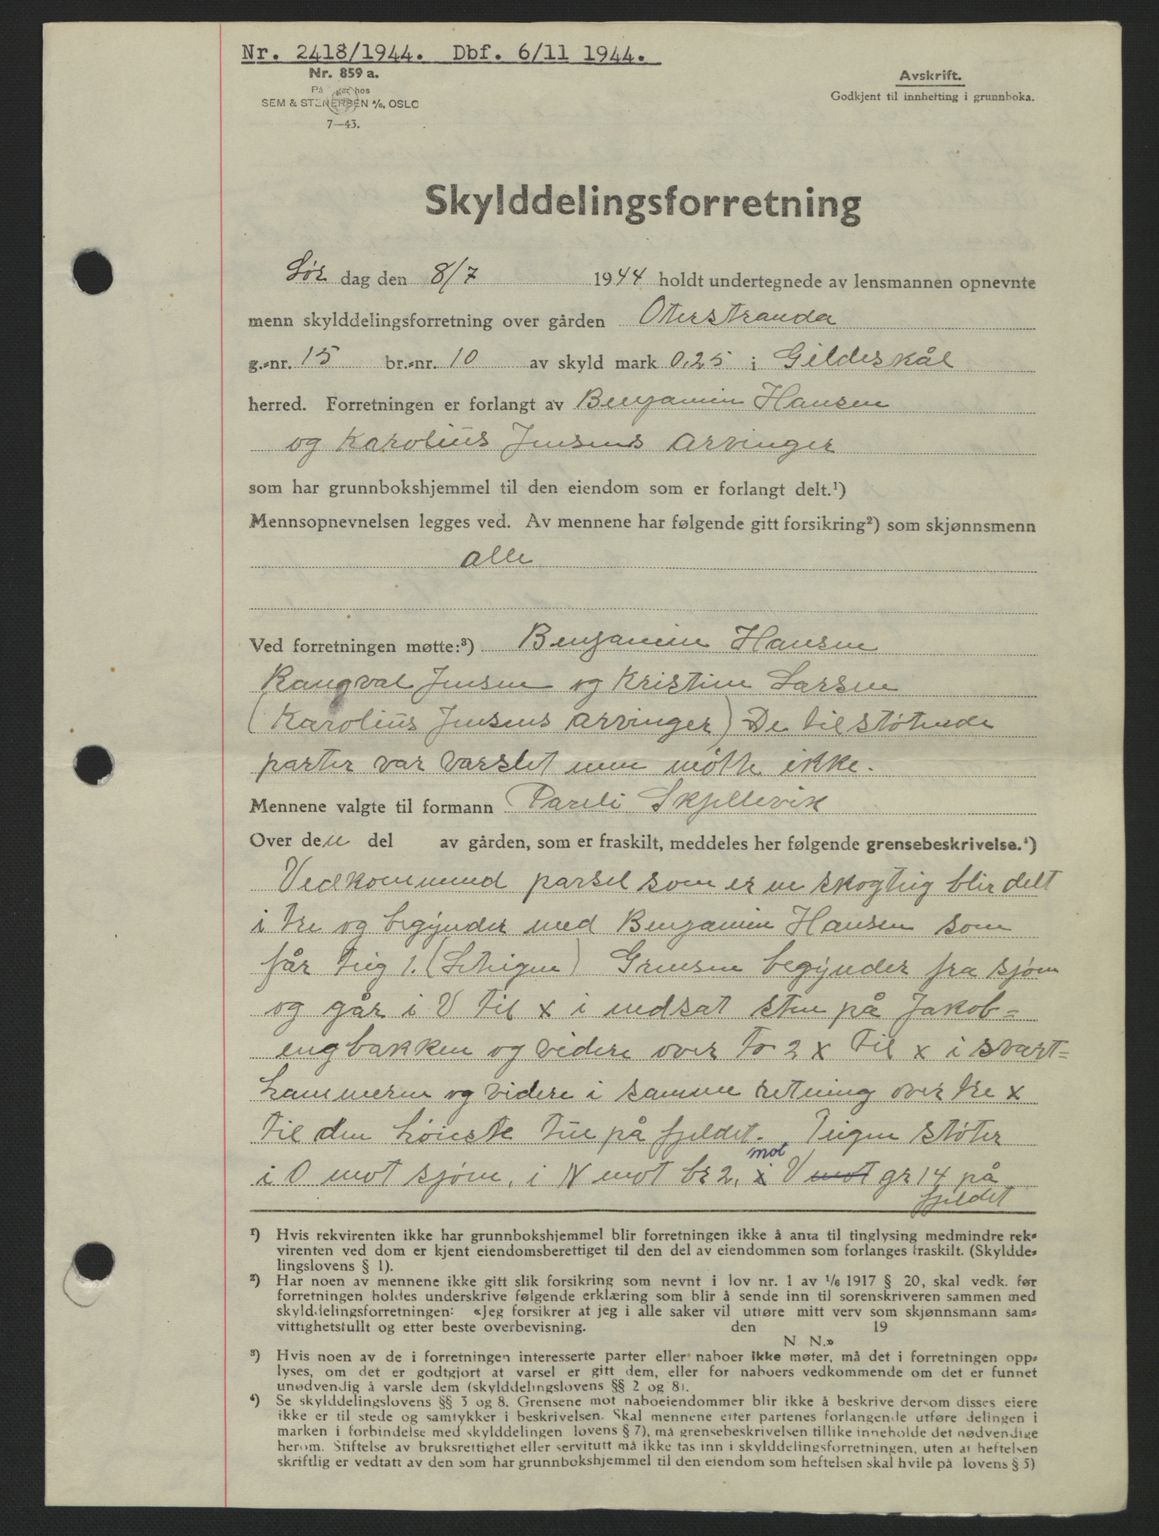 Nr. 2418/1944. Dbf. 6/11 1944.
Nr. 859 a.
På lager hos
SEM & STENERSEN A/S, OSLO
7—43.
Avskrift.
Godkjent til innhefting i grunnboka.
Skylddelingsforretning
Lør dag den 8/7 1944 holdt undertegnede av lensmannen opnevnte
menn skylddelingsforretning over gården Oterstranda
g.-nr. 15 br.-nr. 10 av skyld mark 0,25 i Gildeskål
herred. Forretningen er forlangt av Benjamin Hansen
og Karolius Jensens arvinger
som har grunnbokshjemmel til den eiendom som er forlangt delt.¹)
Mennsopnevnelsen legges ved. Av mennene har følgende gitt forsikring²) som skjønnsmenn
alle
Ved forretningen møtte:³) Benjamin Hansen
Rangval Jensen og Kristine Larsen
(Karolius Jensens arvinger) De tilstøtende
parter var varslet men møtte ikke.
Mennene valgte til formann Pareli Skjellevik
Over den del av gården, som er fraskilt, meddeles her følgende grensebeskrivelse.⁴)
Vedkommend parsel som er en skogteig blir delt
i tre og begynder med Benjamin Hansen som
får teig 1. Grensen begynder fra sjøen
og går i V til x i nedsat sten på Jakob-
engbakken og videre over to 2 x til x i svart-
hammeren og videre i samme retning over tre x
til den høieste tue på fjeldet. Teigen støter
i O mot sjøen, i N mot br 2, i mot V mot gr 14 på
fjeldet
¹) Hvis rekvirenten ikke har grunnbokshjemmel blir forretningen ikke å anta til tinglysing medmindre rek-
virenten ved dom er kjent eiendomsberettiget til den del av eiendommen som forlanges fraskilt. (Skyldde-
lingslovens § 1).
²) Har noen av mennene ikke gitt slik forsikring som nevnt i lov nr. 1 av 1/6 1917 § 20, skal vedk. før
forretningen holdes underskrive følgende erklæring som blir å sende inn til sorenskriveren sammen med
skylddelingsforretningen: «Jeg forsikrer at jeg i alle saker vil utføre mitt verv som skjønnsmann sam-
vittighetsfullt og etter beste overbevisning. den 19
N. N.»
³) Hvis noen av de i forretningen interesserte parter eller naboer ikke møter, må det i forretningen opp-
lyses, om det er godtgjort at varsel er gitt dem, eller for naboers vedkommende om det er funnet
unødvendig å varsle dem (skylddelingslovens §§ 2 og 8).
⁴) Se skylddelingslovens §§ 3 og 8. Grensene mot naboeiendommer blir ikke å beskrive dersom disses eiere
ikke er til stede og samtykker i beskrivelsen. Skal mennene etter partenes forlangende utføre delingen i
marken i forbindelse med skylddelingen lovens § 7), må grensebeskrivelsen tillike inneholde det nødvendige
herom. Stiftelse av bruksrettighet eller servitutt må ikke tas inn i skylddelingsforretningen, uten at heftelsen
skriftlig er vedtatt av den som har grunnbokshjemmel til den eiendom som heftelsen skal hvile på lovens § 5)